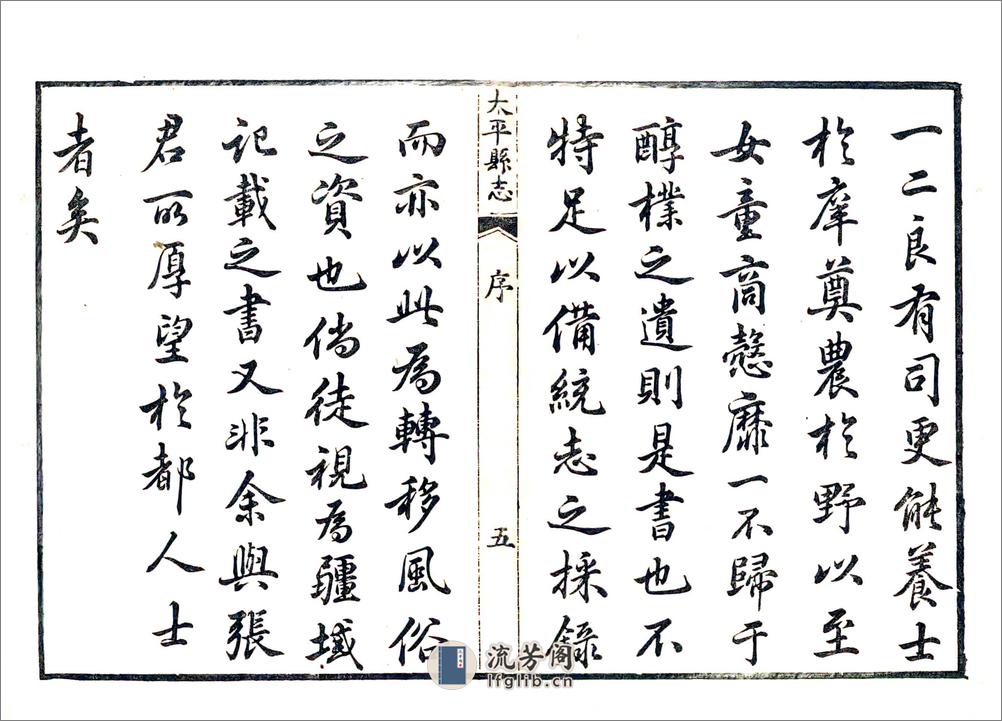 一二良有司更能養士
於庠奠農於野以至
女童商愨靡一不歸于
醇樸之遺則是書也不
特足以備統志之採錄
太平縣志
序
五
而亦以此為轉移風俗
之資也倘徒視為疆域
記載之書又非余與張
君所厚望於都人士
者矣
流芳閣
lfglib.cn